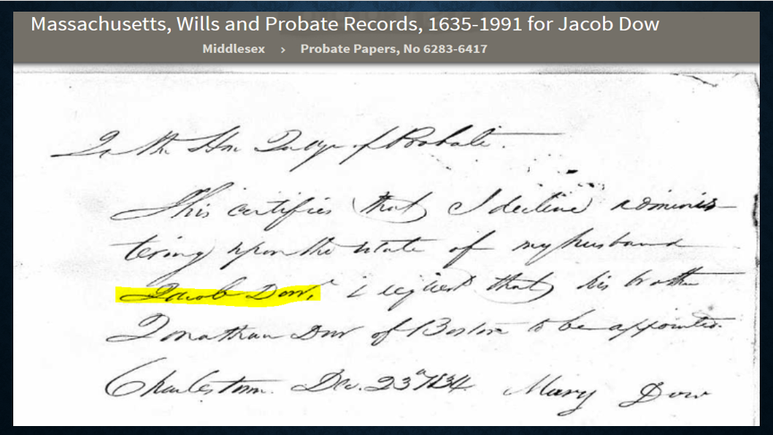 Massachusetts, Wills and Probate Records, 1635-1991 for Jacob Dow
Middlesex › Probate Papers, No 6283-6417
To the Hon Judge of Probate.
This certifies that I decline adminis-
tering upon the estate of my husband
Jacob Dow, & request that his brother
Jonathan Dow of Boston to be appointed.
Charlestown. Dec. 23d Mary Dow